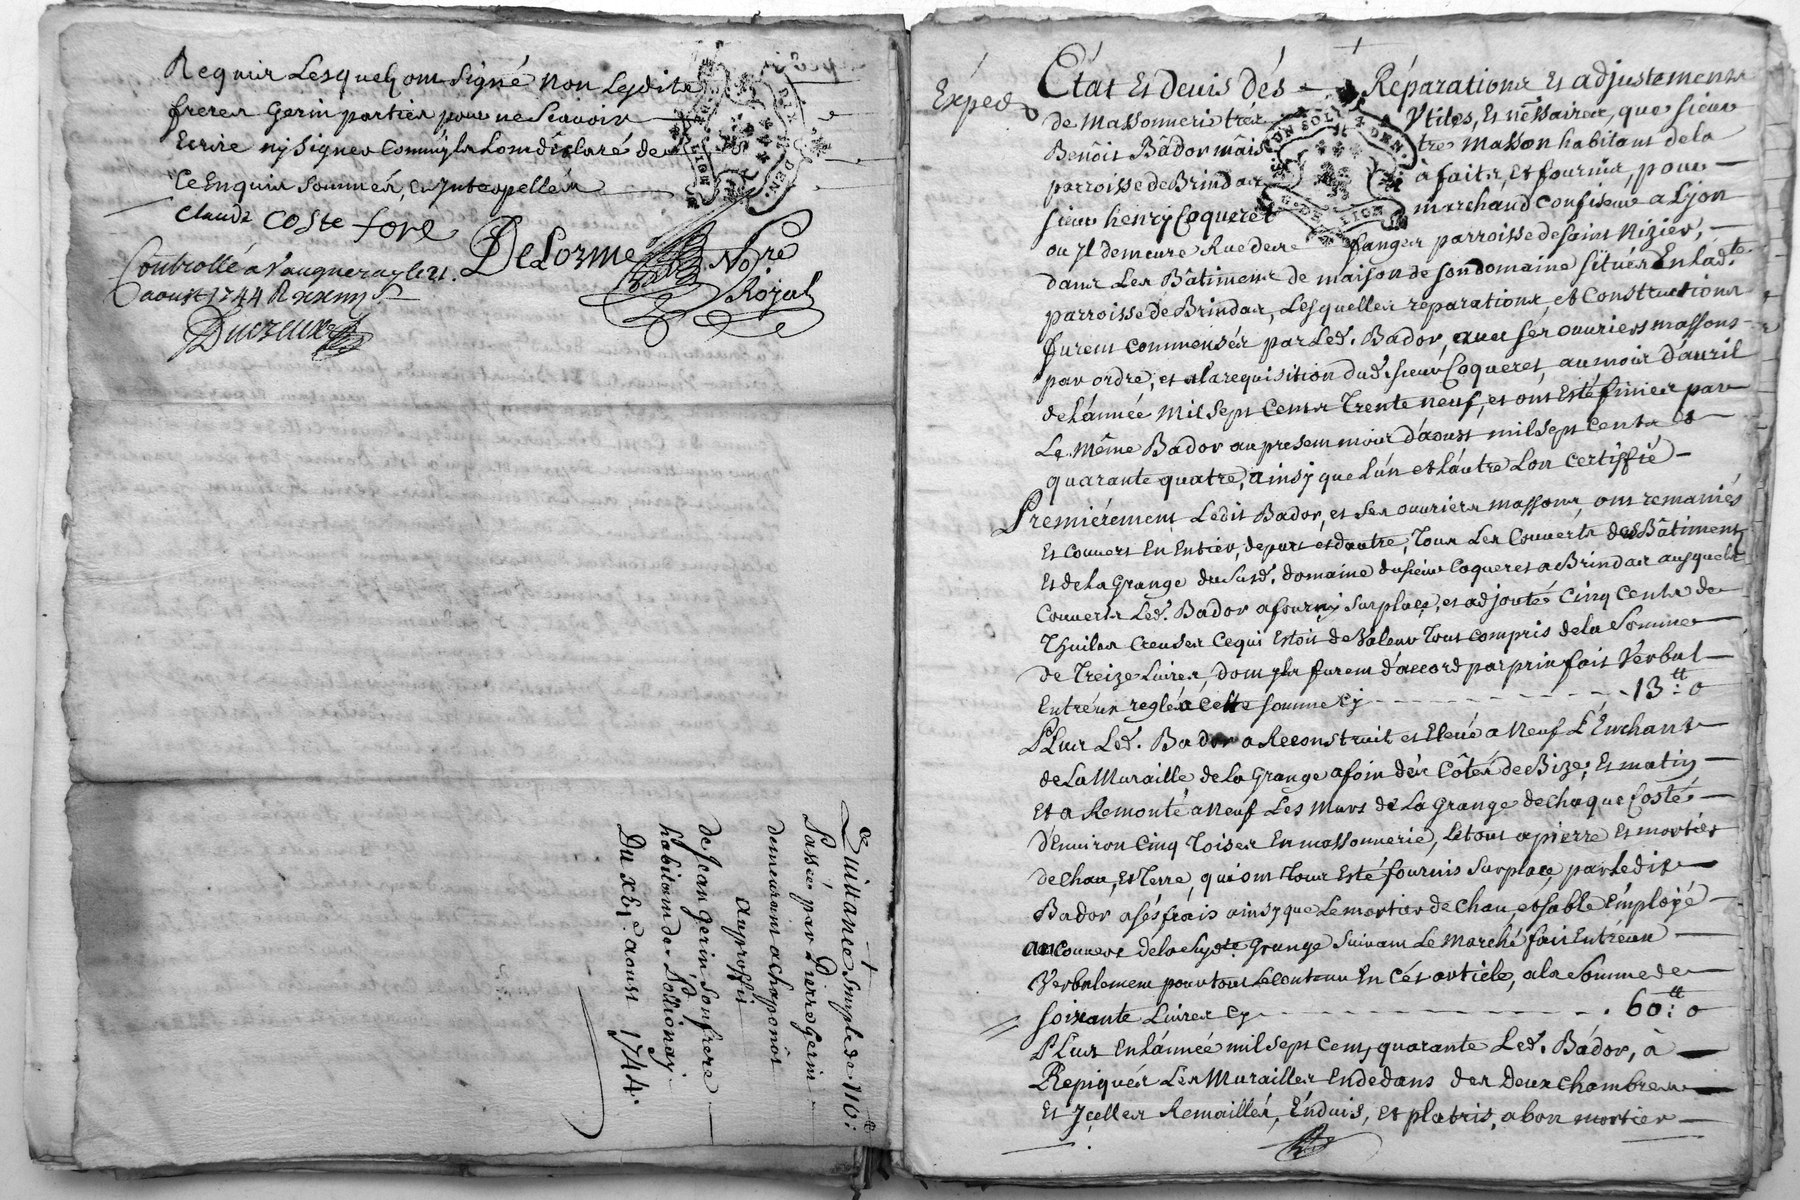 Requis Lesquels ont signé non Lesdits
freres Gerin parties pour ne Scavoir
Ecrire ny Signer Comm'yls Lont déclaré de
Ce Enquis Sommés, et Interpellés
Claude Coste fore
DeLorme Nore
Royal
Controllé a Vaugneray le 21.
aoust 1744 R xxiiij s.
Ducreux
Quittance Simple de 110:
Passée par Pierre Gerin
demeurant a chaponost
au proffit
de Jean Gerin Son frere
habitant de Pollionay
Du XXIe. aoust 1744.
Exped
Etat Et devis dés Réparations Et adjustements
de Massonnerie trés Vtiles, Et néssaires, que sieur
Benôit Bâdor maistre Masson habitant de la
parroisse de Brindas a fait, et fournir, pour
sieur henry Coqueret marchand Confiseur a Lyon
ou Jl demeure Rue dere fanges parroisse de saint Nizier,
dans Les Bâtiments de maison de son domaine Situés En lad.te
parroisse de Brindas, Lesquelles réparations, et Constructions
furent commensés par Led. Bador, avec ses ouvriers massons
par ordre, et a la requisition dud. sieur Coqueret, au mois d'avril
de l'année Mil Sept Cents Trente neuf, et ont Esté finies par
Le même Bador au present mois d'aoust mil Sept Cents
quarante quatre, ainsy que l'un et l'autre L'on certiffié
Premiérement Ledit Bador, et ses ouvriers massons, ont remaniés
Et Couvert En Entier, de part et d'autre, Tous Les Couverts des Bâtiments
Et de la Grange du Susd. domaine du sieur Coqueret a Brindas ausquels
Couverts Led. Bador a fourny Sur place, et adjouté Cinq Cents de
Thuiles Creuses Ce qui Estoit de Valeur Tout compris de la Somme
de Treize Livres, dont yls furent d'accord par prix fait Verbal
Entréux reglé a Cette somme Cy 13tt: 0
Plus Led. Bador a Reconstruit et Elevé a Neuf L'Enchant
de La Muraille de la Grange a foin dés Côtés de Bize, Et matin
Et a Remonté a Neuf Les Murs de La Grange de Chaque Costé
D'environ Cinq Toises En massonnerie, Le tout a pierre Et mortier
de Chau, Et Terre, qui ont Tous Esté fournis Sur place, par Ledit
Bador a Sés frais ainsy que Le mortier de Chau, et sable Employé
au Couvert de la Susdte. Grange Suivant Le Marché fait Entréux
Verbalement pour tout Le Contenu En Cét article, a la Somme de
soixante Livres Cy 60tt: 0
Plus En l'année mil Sept Cent, quarante Led. Bâdor, à
Repiqués Les Murailles En dedans des Deux Chambres
Et Jcelles Remaillér, Enduis, Et platris, a bon mortier